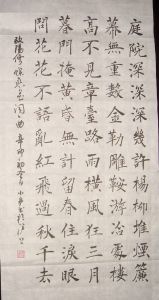 庭院深深深幾許楊柳堆煙簾
幕無重數金勒雕鞍游冶處樓
高不見章臺路雨橫風狂三月
暮門掩黃昏無計留春住淚眼
問花花不語亂紅飛過秋千去
歐陽修 辛卯初冬